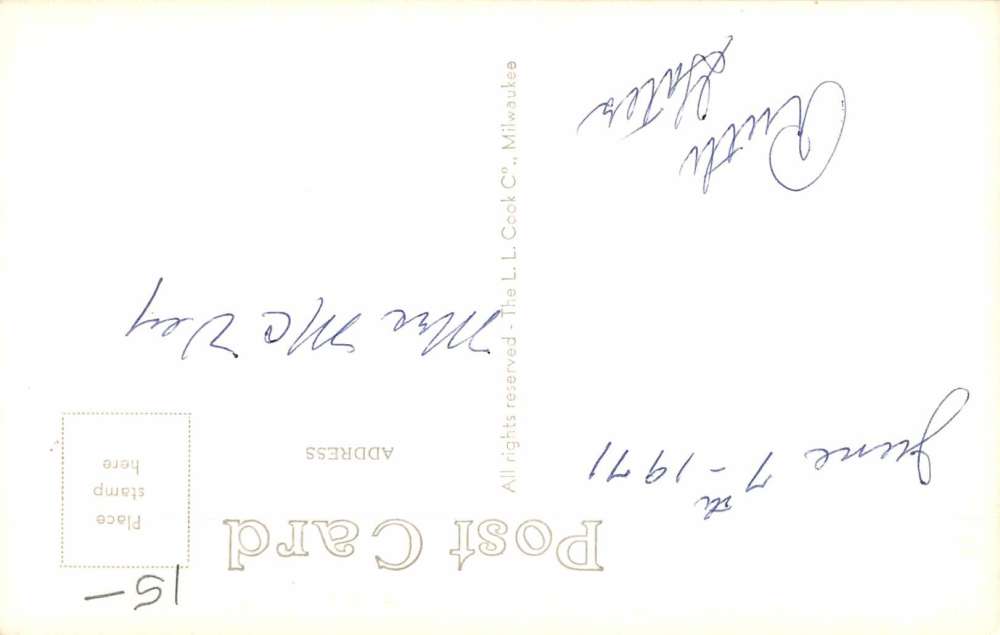 Post Card
Place
stamp
here
ADDRESS
June 7th - 1971
Mrs Mc Vey
Ruth
All rights reserved - The L. L. Cook Co., Milwaukee
15-